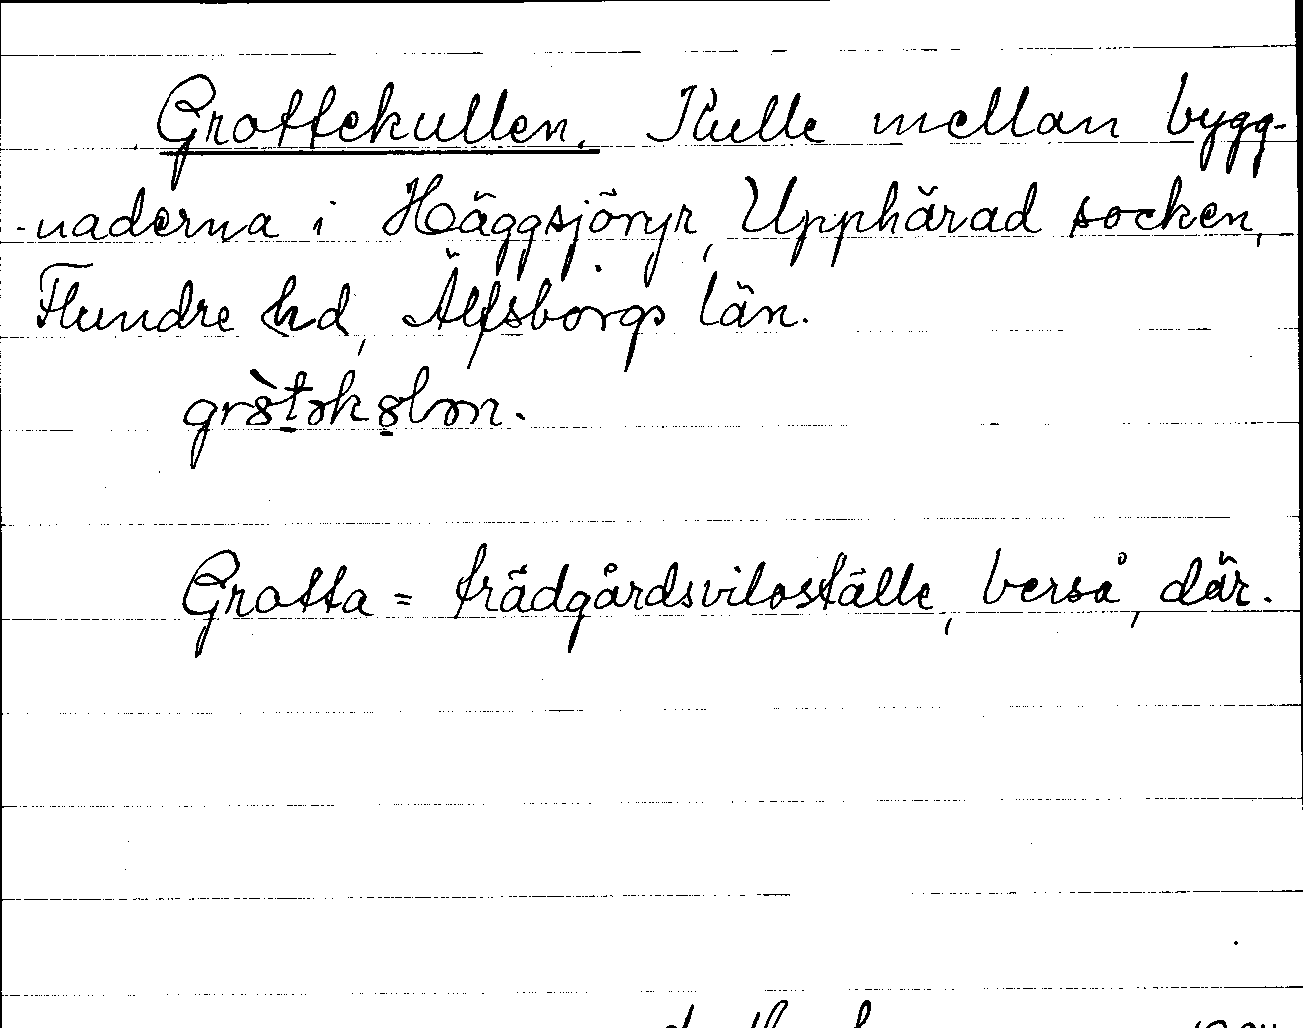 Grottekullen. Kulle mellan bygg-
-naderna i Häggsjöryr, Upphärad socken,
Flundre hd, Älfsborgs län.
Grotta = trädgårdsviloställe, berså, där.